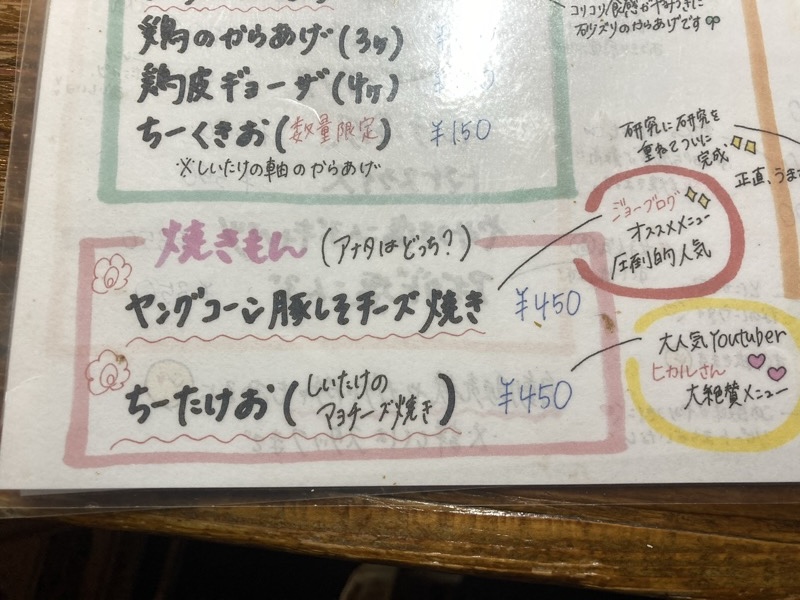 コリコリ食感がやみつきに
砂ズリのからあげです
鶏のからあげ(3ヶ)
鶏皮ギョーザ(4ヶ)
ちーくきお(数量限定) ¥150
※しいたけの軸のからあげ
研究に研究を
重ねてついに
完成
正直、うま
焼きもん(アナタはどっち?)
ジョーブログ
オススメメニュー
圧倒的人気
ヤングコーン豚しそチーズ焼き ¥450
ちーたけお(しいたけの
マヨチーズ焼き) ¥450
大人気Youtuber
ヒカルさん
大絶賛メニュー